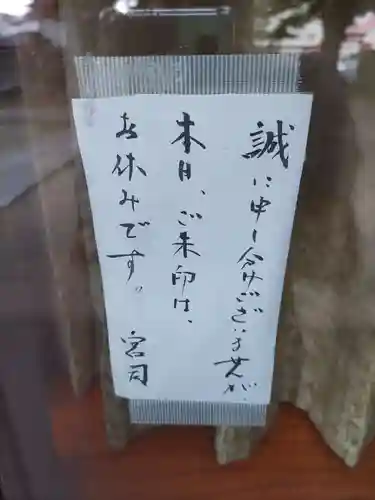 誠に申し分けございませんが
本日、ご朱印は、
お休みです。
宮司